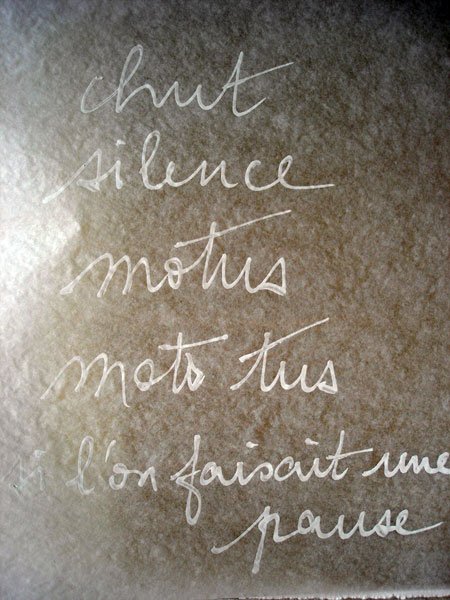 chut
silence
motus
mots tus
si l'on faisait une
pause